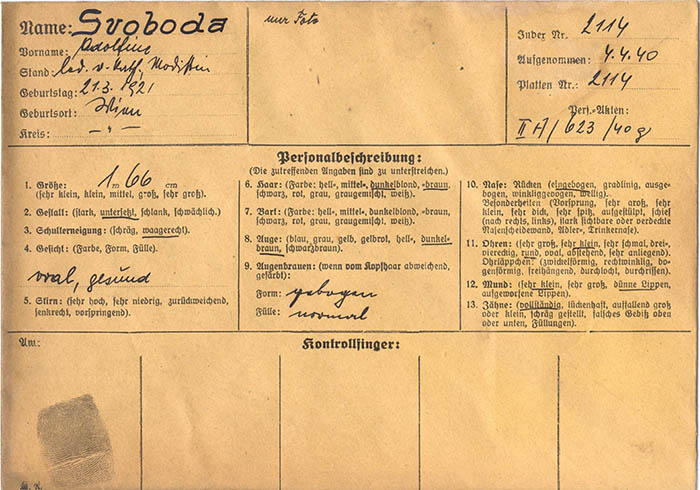 Name: Svoboda
Vorname: Adolfine
Stand: led. v. kath, Modistin
Geburtstag: 21.3. 1921
Geburtsort: Wien
Kreis: – " –
nur Foto
Index Nr. 2114
Aufgenommen: 4.4.40
Platten Nr.: 2114
Pers.-Akten:
II A/623/40g
Personalbeschreibung:
(Die zutreffenden Angaben sind zu unterstreichen.)
1. Größe: 1 m 66 cm
(sehr klein, klein, mittel, groß, sehr groß).
2. Gestalt: (stark, untersetzt, schlank, schwächlich).
3. Schulterneigung: (schräg, waagerecht).
4. Gesicht: (Farbe, Form, Fülle).
oval, gesund
5. Stirn: (sehr hoch, sehr niedrig, zurückweichend,
senkrecht, vorspringend).
6. Haar: (Farbe: hell-, mittel-, dunkelblond, -braun,
schwarz, rot, grau, graugemischt, weiß).
7. Bart: (Farbe: hell-, mittel-, dunkelblond, -braun,
schwarz, rot, grau, graugemischt, weiß).
8. Auge: (blau, grau, gelb, gelbrot, hell-, dunkel-
braun, schwarzbraun).
9. Augenbrauen: (wenn vom Kopfhaar abweichend,
gefärbt):
Form: gebogen
Fülle: normal
10. Nase: Rücken (eingebogen, gradlinig, ausge-
bogen, winkliggebogen, wellig).
Besonderheiten (Vorsprung, sehr groß, sehr
klein, sehr dick, sehr spitz, aufgestülpt, schief
(nach rechts, links), stark sichtbare oder verdeckte
Nasenscheidewand, Adler-, Trinkernase).
11. Ohren: (sehr groß, sehr klein, sehr schmal, drei-
viereckig, rund, oval, abstehend, sehr anliegend).
Ohrläppchen: (zwickelförmig, rechtwinklig, bo-
genförmig, freihängend, durchlocht, durchrissen).
12. Mund: (sehr klein, sehr groß, dünne Lippen,
aufgeworfene Lippen).
13. Zähne: (vollständig, lückenhaft, auffallend groß
oder klein, schräg gestellt, falsches Gebiß oben
oder unten, Füllungen).
Um:
Kontrollfinger: